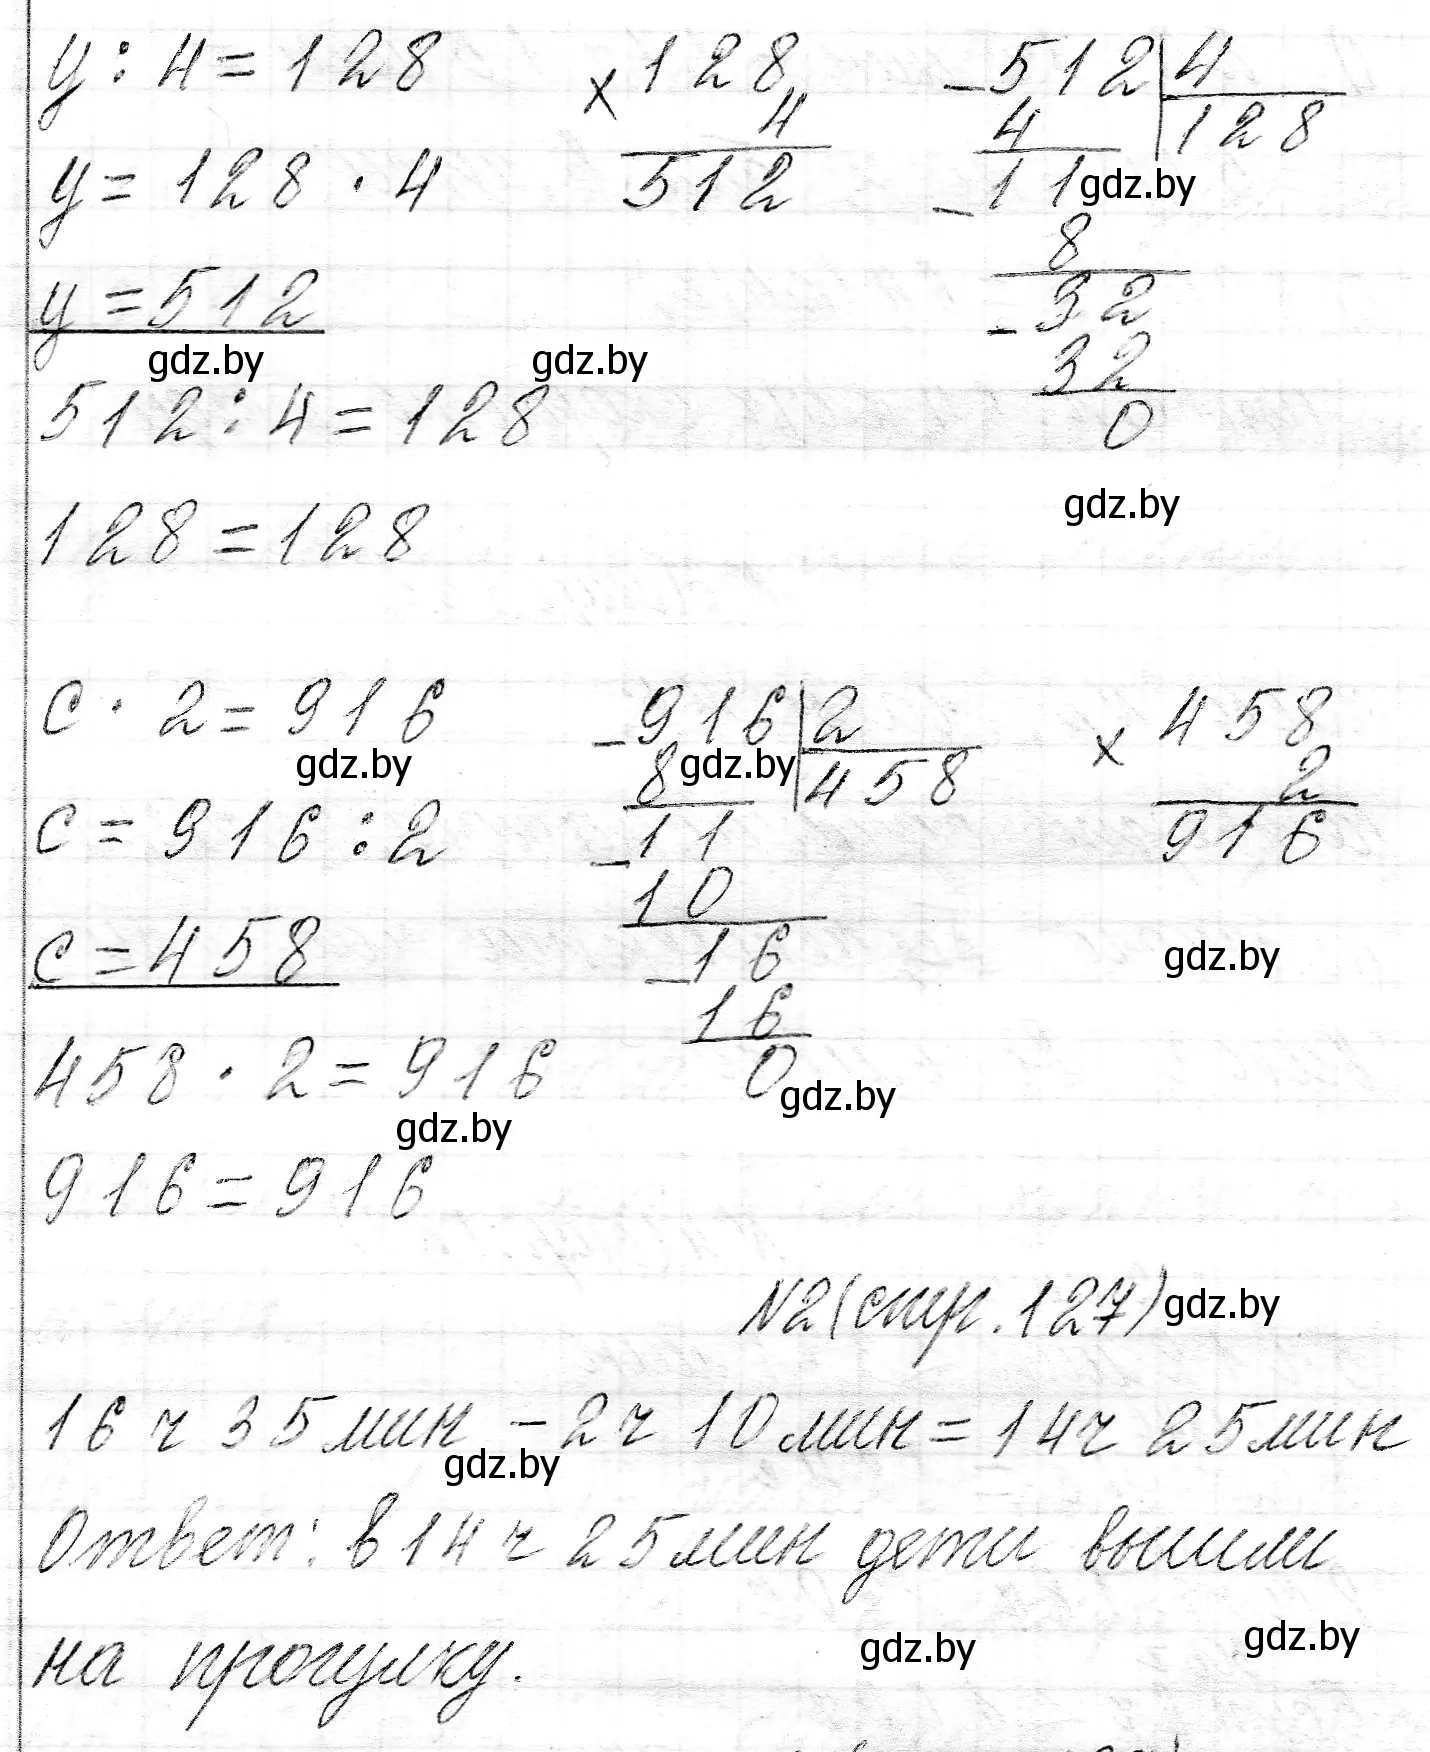 y : 4 = 128
y = 128 · 4
y = 512
512 : 4 = 128
128 = 128
× 128
4
512
- 512 | 4
4 | 128
- 11
8
- 32
32
0
gdz.by
gdz.by gdz.by
gdz.by
c · 2 = 916
c = 916 : 2
c = 458
458 · 2 = 916
916 = 916
- 916 | 2
8 | 458
- 11
10
- 16
16
0
× 458
2
916
gdz.by gdz.by
gdz.by
gdz.by
gdz.by
N2 (стр. 127) gdz.by
16 ч 35 мин - 2 ч 10 мин = 14 ч 25 мин
gdz.by
Ответ: в 14 ч 25 мин дети вышли
на прогулку.
gdz.by gdz.by